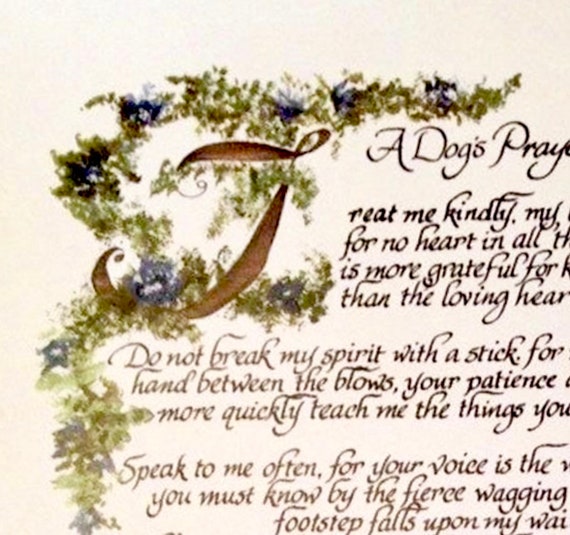 A Dog's Praye
Treat me kindly, my
for no heart in all th
is more grateful for k
than the loving hear
Do not break my spirit with a stick, for
hand between the blows, your patience a
more quickly teach me the things you
Speak to me often, for your voice is the w
you must know by the fierce wagging
footstep falls upon my wai